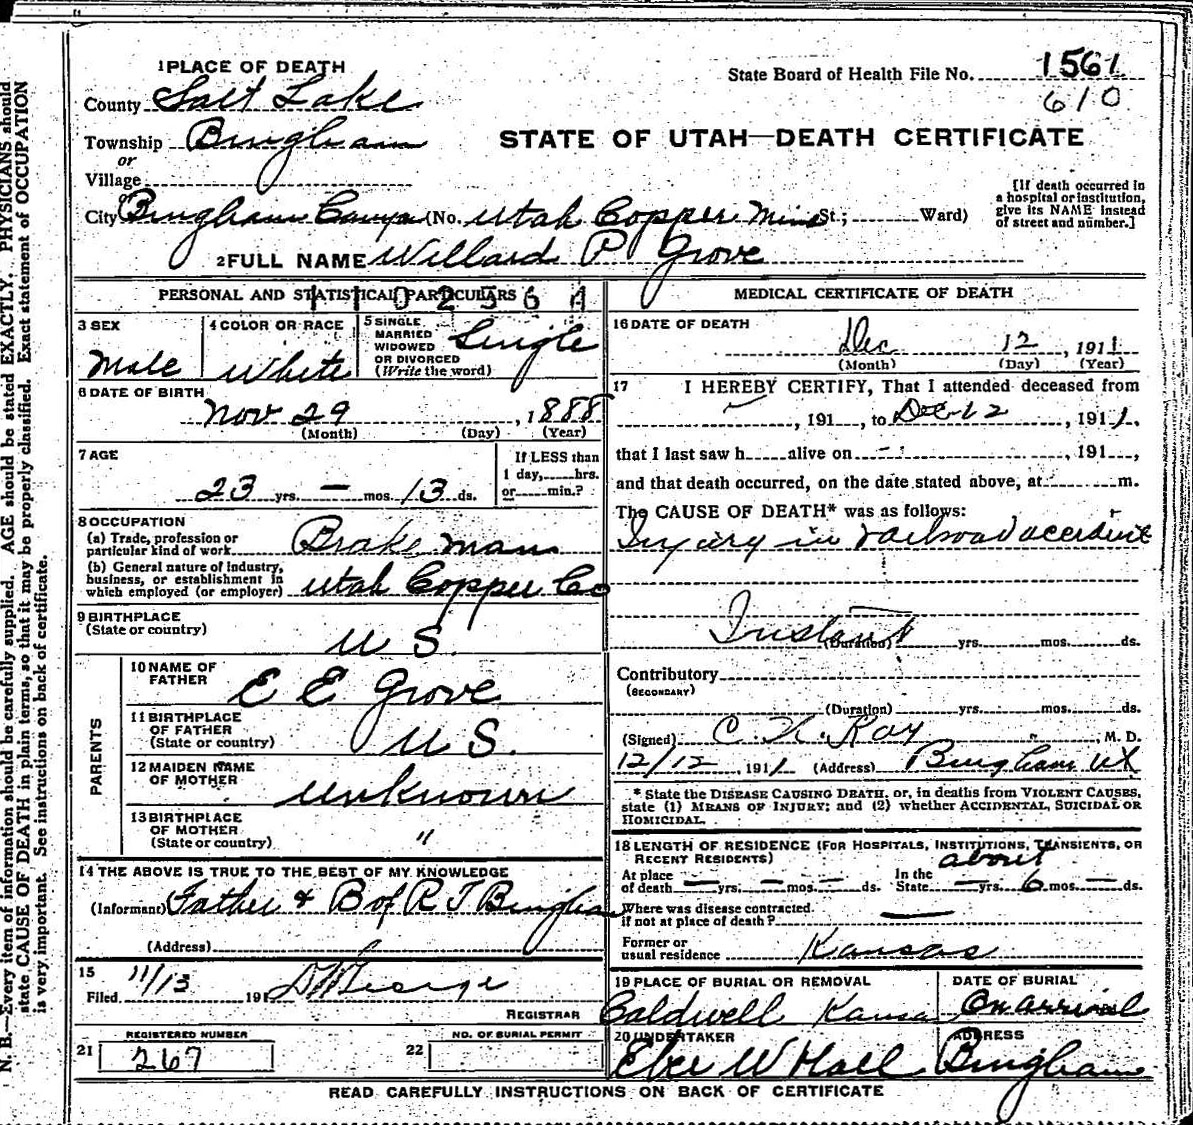 1 PLACE OF DEATH
State Board of Health File No. 1561
610
County Salt Lake
Township Bingham
or
Village
STATE OF UTAH—DEATH CERTIFICATE
City Bingham Canyon (No. Utah Copper Mine St.; Ward)
[If death occurred in a hospital or institution, give its NAME instead of street and number.]
2 FULL NAME Willard P Grove
PERSONAL AND STATISTICAL PARTICULARS
110256A
3 SEX
Male
4 COLOR OR RACE
White
5 SINGLE
MARRIED
WIDOWED
OR DIVORCED
(Write the word)
Single
6 DATE OF BIRTH
Nov 29, 1888
(Month) (Day) (Year)
7 AGE
23 yrs. — mos. 13 ds.
If LESS than
1 day, hrs.
or min.?
8 OCCUPATION
(a) Trade, profession or
particular kind of work Brakeman
(b) General nature of industry,
business, or establishment in
which employed (or employer) Utah Copper Co
9 BIRTHPLACE
(State or country)
U S.
PARENTS
10 NAME OF
FATHER
E E Grove
11 BIRTHPLACE
OF FATHER
(State or country)
U S.
12 MAIDEN NAME
OF MOTHER
Unknown
13 BIRTHPLACE
OF MOTHER
(State or country)
"
14 THE ABOVE IS TRUE TO THE BEST OF MY KNOWLEDGE
(Informant) Father & B of R T Bingham
(Address)
15
Filed 11/13 191
REGISTRAR
REGISTERED NUMBER
21 267
NO. OF BURIAL PERMIT
22
MEDICAL CERTIFICATE OF DEATH
16 DATE OF DEATH
Dec 12, 1911
(Month) (Day) (Year)
17 I HEREBY CERTIFY, That I attended deceased from
, 191 , to Dec 12, 1911,
that I last saw h alive on , 191 ,
and that death occurred, on the date stated above, at m.
The CAUSE OF DEATH* was as follows:
Injury in railroad accident
Instant
(Duration) yrs. mos. ds.
Contributory
(SECONDARY)
(Duration) yrs. mos. ds.
(Signed) C. N. Ray, M. D.
12/12, 1911 (Address) Bingham Ut
* State the DISEASE CAUSING DEATH, or, in deaths from VIOLENT CAUSES,
state (1) MEANS OF INJURY; and (2) whether ACCIDENTAL, SUICIDAL OR
HOMICIDAL.
18 LENGTH OF RESIDENCE (FOR HOSPITALS, INSTITUTIONS, TRANSIENTS, OR
RECENT RESIDENTS)
about
At place
of death — yrs. — mos. — ds. In the
State — yrs. 6 mos. — ds.
Where was disease contracted
if not at place of death? —
Former or
usual residence Kansas
19 PLACE OF BURIAL OR REMOVAL
Caldwell Kansas
DATE OF BURIAL
On arrival
20 UNDERTAKER
Eber W Hall
ADDRESS
Bingham
READ CAREFULLY INSTRUCTIONS ON BACK OF CERTIFICATE
N. B.—Every item of information should be carefully supplied. AGE should be stated EXACTLY. PHYSICIANS should
state CAUSE OF DEATH in plain terms, so that it may be properly classified. Exact statement of OCCUPATION
is very important. See instructions on back of certificate.